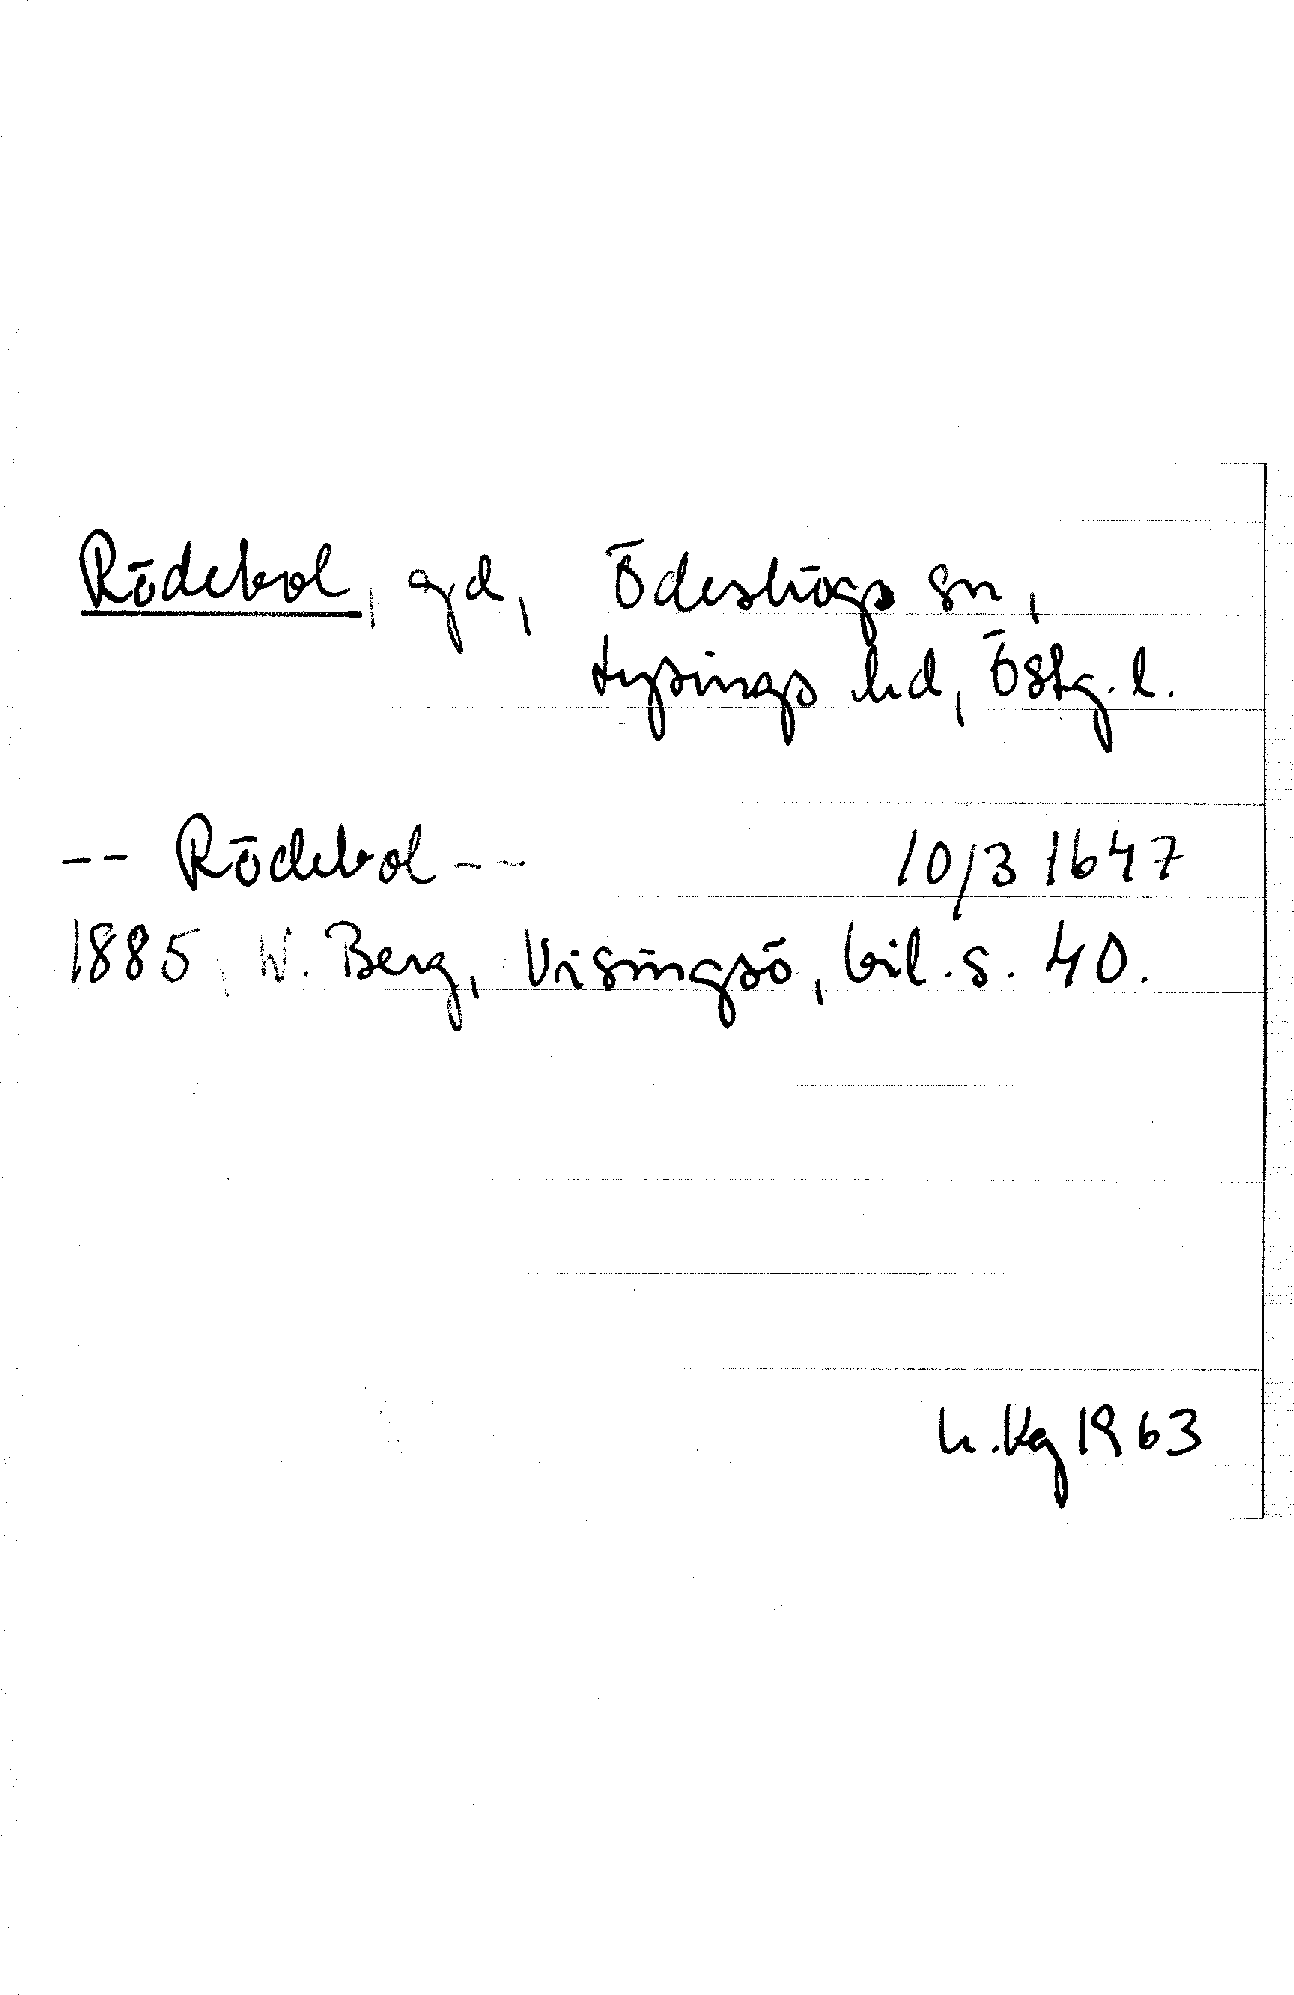 Rödebol, gd, Ödeshögs sn,
Lysings hd, Östg. l.
-- Rödebol -- 10/3 1647
1885, W. Berg, Visingsö, bil. s. 40.
h. Kg 1963